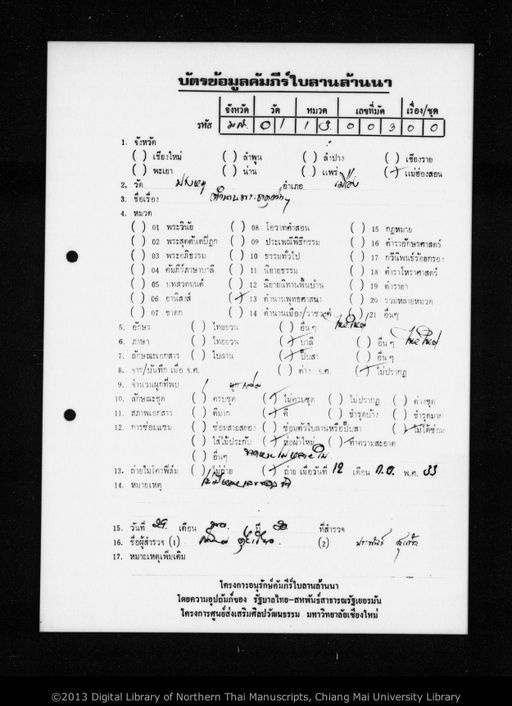 บัตรข้อมูลคัมภีร์ใบลานล้านนา
จังหวัด วัด หมวด เลขที่มัด เรื่อง/ชุด
รหัส มส. 0 1 1 3 0 0 3 0 0
1. จังหวัด
( ) เชียงใหม่ ( ) ลำพูน ( ) ลำปาง ( ) เชียงราย
( ) พะเยา ( ) น่าน ( ) แพร่ ( ) แม่ฮ่องสอน
2. วัด อำเภอ เมือง
3. ชื่อเรื่อง
4. หมวด
( ) 01 พระวินัย ( ) 08 โอวาทคำสอน ( ) 15 กฎหมาย
( ) 02 พระสุตตันตปิฎก ( ) 09 ประเพณีพิธีกรรม ( ) 16 ตำราอักษรศาสตร์
( ) 03 พระอภิธรรม ( ) 10 ธรรมทั่วไป ( ) 17 กวีนิพนธ์ร้อยกรอง
( ) 04 คัมภีร์ภาษาบาลี ( ) 11 นิยายธรรม ( ) 18 ตำราโหราศาสตร์
( ) 05 บทสวดมนต์ ( ) 12 นิยายนิทานพื้นบ้าน ( ) 19 ตำรายา
( ) 06 อานิสงส์ ( ) 13 ตำนานพุทธศาสนา ( ) 20 รวมหลายหมวด
( ) 07 ชาดก ( ) 14 ตำนานเมือง/ราชวงศ์ ( ) 21 อื่นๆ
5. อักษร ( ) ไทยยวน ( ) อื่นๆ ไทใหญ่
6. ภาษา ( ) ไทยยวน ( ) บาลี ( ) อื่นๆ ไทใหญ่
7. ลักษณะเอกสาร ( ) ใบลาน ( ) พับสา ( ) อื่นๆ
8. จาร/บันทึก เมื่อ จ.ศ. ( ) ค่าง จ.ศ. ( ) ไม่ปรากฏ
9. จำนวนผูกที่พบ 1
10. ลักษณะชุด ( ) ครบชุด ( ) ไม่ครบชุด ( ) ไม่ปรากฏ ( ) ต่างชุด
11. สภาพเอกสาร ( ) ดีมาก ( ) ดี ( ) ชำรุดบ้าง ( ) ชำรุดมาก
12. การซ่อมแซม ( ) ซ่อมสายสยอง ( ) ซ่อมตัวใบลานหรือปั๊บสา ( ) ไม่ได้ซ่อม
( ) ใส่ไม้ประกับ ( ) ห่อผ้าใหม่ ( ) ทำความสะอาด
( ) อื่นๆ
13. ถ่ายไมโครฟิล์ม ( ) ไม่ถ่าย ( ) ถ่าย เมื่อวันที่ 12 เดือน ก.ย. พ.ศ. 33
14. หมายเหตุ
15. วันที่ 29 เดือน ปี 30 ที่สำรวจ
16. ชื่อผู้สำรวจ (1) (2)
17. หมายเหตุเพิ่มเติม
โครงการอนุรักษ์คัมภีร์ใบลานล้านนา
โดยความอุปถัมภ์ของ รัฐบาลไทย-สหพันธ์สาธารณรัฐเยอรมัน
โครงการศูนย์ส่งเสริมศิลปวัฒนธรรม มหาวิทยาลัยเชียงใหม่
©2013 Digital Library of Northern Thai Manuscripts, Chiang Mai University Library